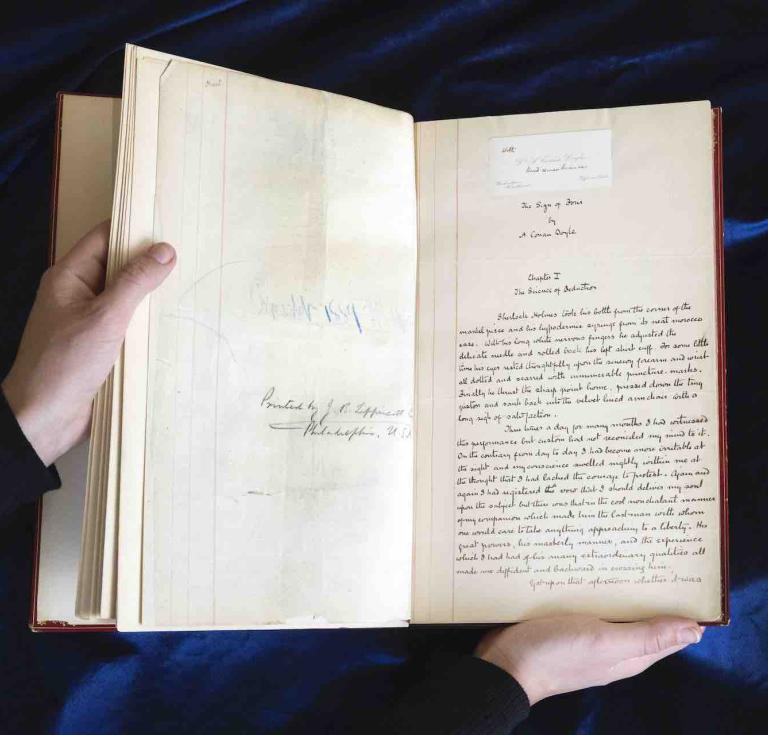 Printed by J. B. Lippincott
Philadelphia, U.S.
With
Dr. A. Conan Doyle
kind remembrances
The Sign of Four
by
A Conan Doyle
Chapter I
The Science of Deduction
Sherlock Holmes took his bottle from the corner of the
mantel piece and his hypodermic syringe from its neat morocco
case. With his long white nervous fingers he adjusted the
delicate needle and rolled back his left shirt cuff. For some little
time his eyes rested thoughtfully upon the sinewy forearm and wrist
all dotted and scarred with innumerable puncture-marks.
Finally he thrust the sharp point home, pressed down the tiny
piston and sank back into the velvet lined arm chair with a
long sigh of satisfaction.
Three times a day for many months I had witnessed
this performance but custom had not reconciled my mind to it.
On the contrary from day to day I had become more irritable at
the sight and my conscience swelled nightly within me at
the thought that I had lacked the courage to protest. Again and
again I had registered the vow that I should deliver my soul
upon the subject but there was that in the cool nonchalant manner
of my companion which made him the last man with whom
one would care to take anything approaching to a liberty. His
great powers, his masterly manner, and the experience
which I had had of his many extraordinary qualities all
made me diffident and backward in crossing him.
Yet upon that afternoon whether it was